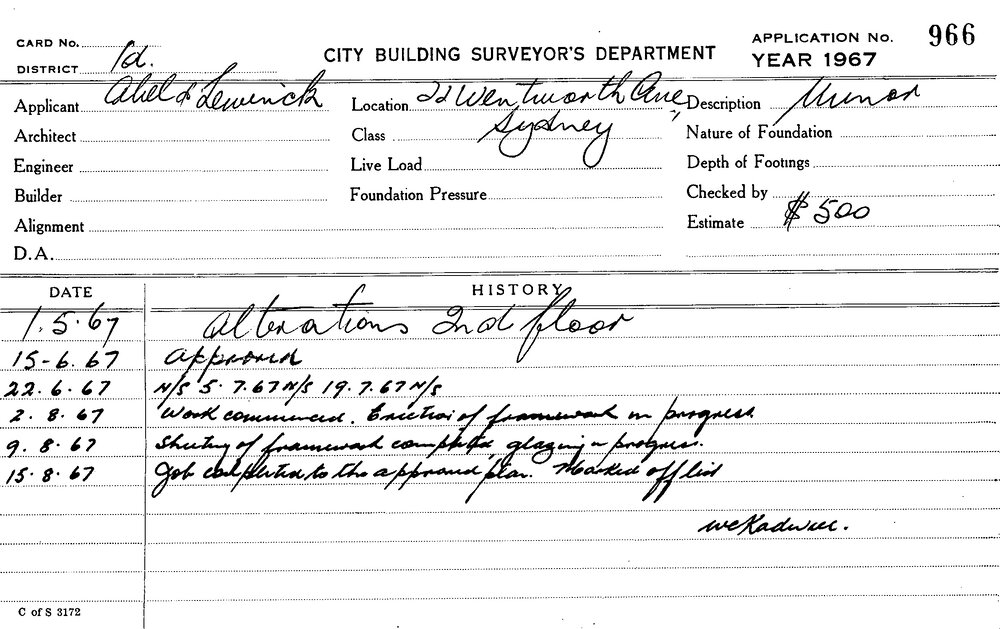 CARD No.
DISTRICT 1d.
CITY BUILDING SURVEYOR'S DEPARTMENT
APPLICATION No. 966
YEAR 1967
Applicant Abel & Lewenick Location 22 Wentworth Ave, Description Minor
Architect Class Sydney Nature of Foundation
Engineer Live Load Depth of Footings
Builder Foundation Pressure Checked by
Alignment Estimate $ 500
D.A.
DATE HISTORY
1.5.67 Alterations 2nd floor
15-6.67 Approved
22.6.67 N/S 5.7.67 N/S 19.7.67 N/S
2.8.67 Work commenced. Erection of framework in progress
9.8.67 Sheeting of framework completed, glazing in progress.
15.8.67 Job completed to the approved plan. Marked off list
C of S 3172